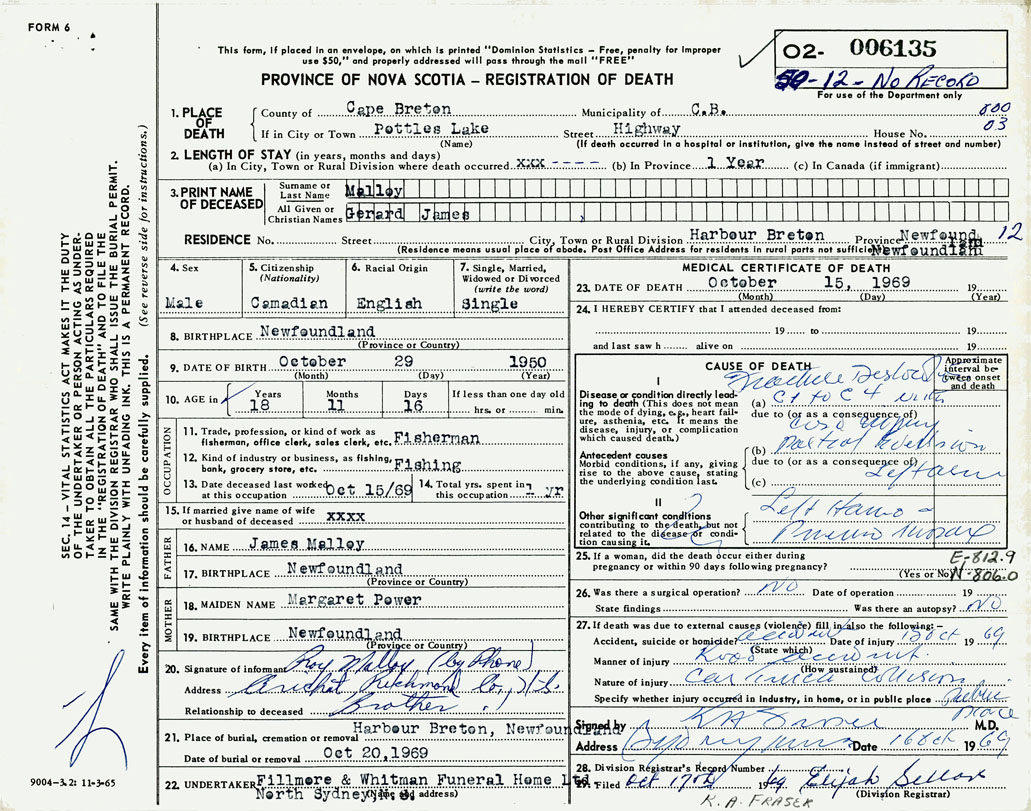 FORM 6
This form, if placed in an envelope, on which is printed "Dominion Statistics – Free, penalty for improper
use $50," and properly addressed will pass through the mail "FREE"
PROVINCE OF NOVA SCOTIA – REGISTRATION OF DEATH
02- 006135
50-12- NO RECORD
For use of the Department only
1. PLACE OF DEATH
County of Cape Breton Municipality of C.B. 800
If in City or Town Pottles Lake Street Highway House No. 03
(Name) (If death occurred in a hospital or institution, give the name instead of street and number)
2. LENGTH OF STAY (in years, months and days)
(a) In City, Town or Rural Division where death occurred xxx ---- (b) In Province 1 Year (c) In Canada (if immigrant)
3. PRINT NAME OF DECEASED
Surname or Last Name Malloy
All Given or Christian Names Gerard James
RESIDENCE No. Street City, Town or Rural Division Harbour Breton Province Newfound 12
(Residence means usual place of abode. Post Office Address for residents in rural parts not sufficient) Newfoundland
4. Sex Male
5. Citizenship (Nationality) Canadian
6. Racial Origin English
7. Single, Married, Widowed or Divorced (write the word) Single
8. BIRTHPLACE Newfoundland
(Province or Country)
9. DATE OF BIRTH October 29 1950
(Month) (Day) (Year)
10. AGE in Years Months Days If less than one day old
18 11 16 hrs. or min.
OCCUPATION
11. Trade, profession, or kind of work as
fisherman, office clerk, sales clerk, etc. Fisherman
12. Kind of industry or business, as fishing,
bank, grocery store, etc. Fishing
13. Date deceased last worked at this occupation Oct 15/69
14. Total yrs. spent in this occupation 1 yr
15. If married give name of wife
or husband of deceased xxxx
FATHER
16. NAME James Malloy
17. BIRTHPLACE Newfoundland
(Province or Country)
MOTHER
18. MAIDEN NAME Margaret Power
19. BIRTHPLACE Newfoundland
(Province or Country)
20. Signature of informant Roy Malloy (by Phone)
Address Arichat Richmond Co., N.S.
Relationship to deceased Brother
21. Place of burial, cremation or removal Harbour Breton, Newfoundland
Date of burial or removal Oct 20,1969
22. UNDERTAKER Fillmore & Whitman Funeral Home Ltd.
North Sydney, N.S.
(Name and address)
MEDICAL CERTIFICATE OF DEATH
23. DATE OF DEATH October 15, 1969 19
(Month) (Day) (Year)
24. I HEREBY CERTIFY that I attended deceased from:
19 to 19
and last saw h alive on 19
CAUSE OF DEATH
Approximate interval between onset and death
I
Disease or condition directly leading to death (This does not mean
the mode of dying, e.g., heart failure, asthenia, etc. It means the
disease, injury, or complication
which caused death.)
(a) C1 to C4 with
due to (or as a consequence of)
Antecedent causes
Morbid conditions, if any, giving
rise to the above cause, stating
the underlying condition last.
(b)
due to (or as a consequence of)
(c)
II
Other significant conditions
contributing to the death, but not
related to the disease or condition causing it.
Left
25. If a woman, did the death occur either during
pregnancy or within 90 days following pregnancy?
(Yes or No)
E-812.9
N-806.0
26. Was there a surgical operation? NO Date of operation 19
State findings Was there an autopsy? NO
27. If death was due to external causes (violence) fill in also the following:–
Accident, suicide or homicide? accident Date of injury 15 Oct 69
(State which)
Manner of injury Road accident.
(How sustained)
Nature of injury Car truck collision
Specify whether injury occurred in industry, in home, or in public place Public place
Signed by M.D.
Address Sydney Mines Date 16 Oct 1969
28. Division Registrar's Record Number
29. Filed Oct 17th 1969 Elijah
(Division Registrar)
K. A. FRASER
SEC. 14 – VITAL STATISTICS ACT MAKES IT THE DUTY
OF THE UNDERTAKER OR PERSON ACTING AS UNDER-
TAKER TO OBTAIN ALL THE PARTICULARS REQUIRED
IN THE "REGISTRATION OF DEATH" AND TO FILE THE
SAME WITH THE DIVISION REGISTRAR WHO SHALL ISSUE THE BURIAL PERMIT.
WRITE PLAINLY WITH UNFADING INK. THIS IS A PERMANENT RECORD.
Every item of information should be carefully supplied. (See reverse side for instructions.)
9004-3.2: 11-3-65